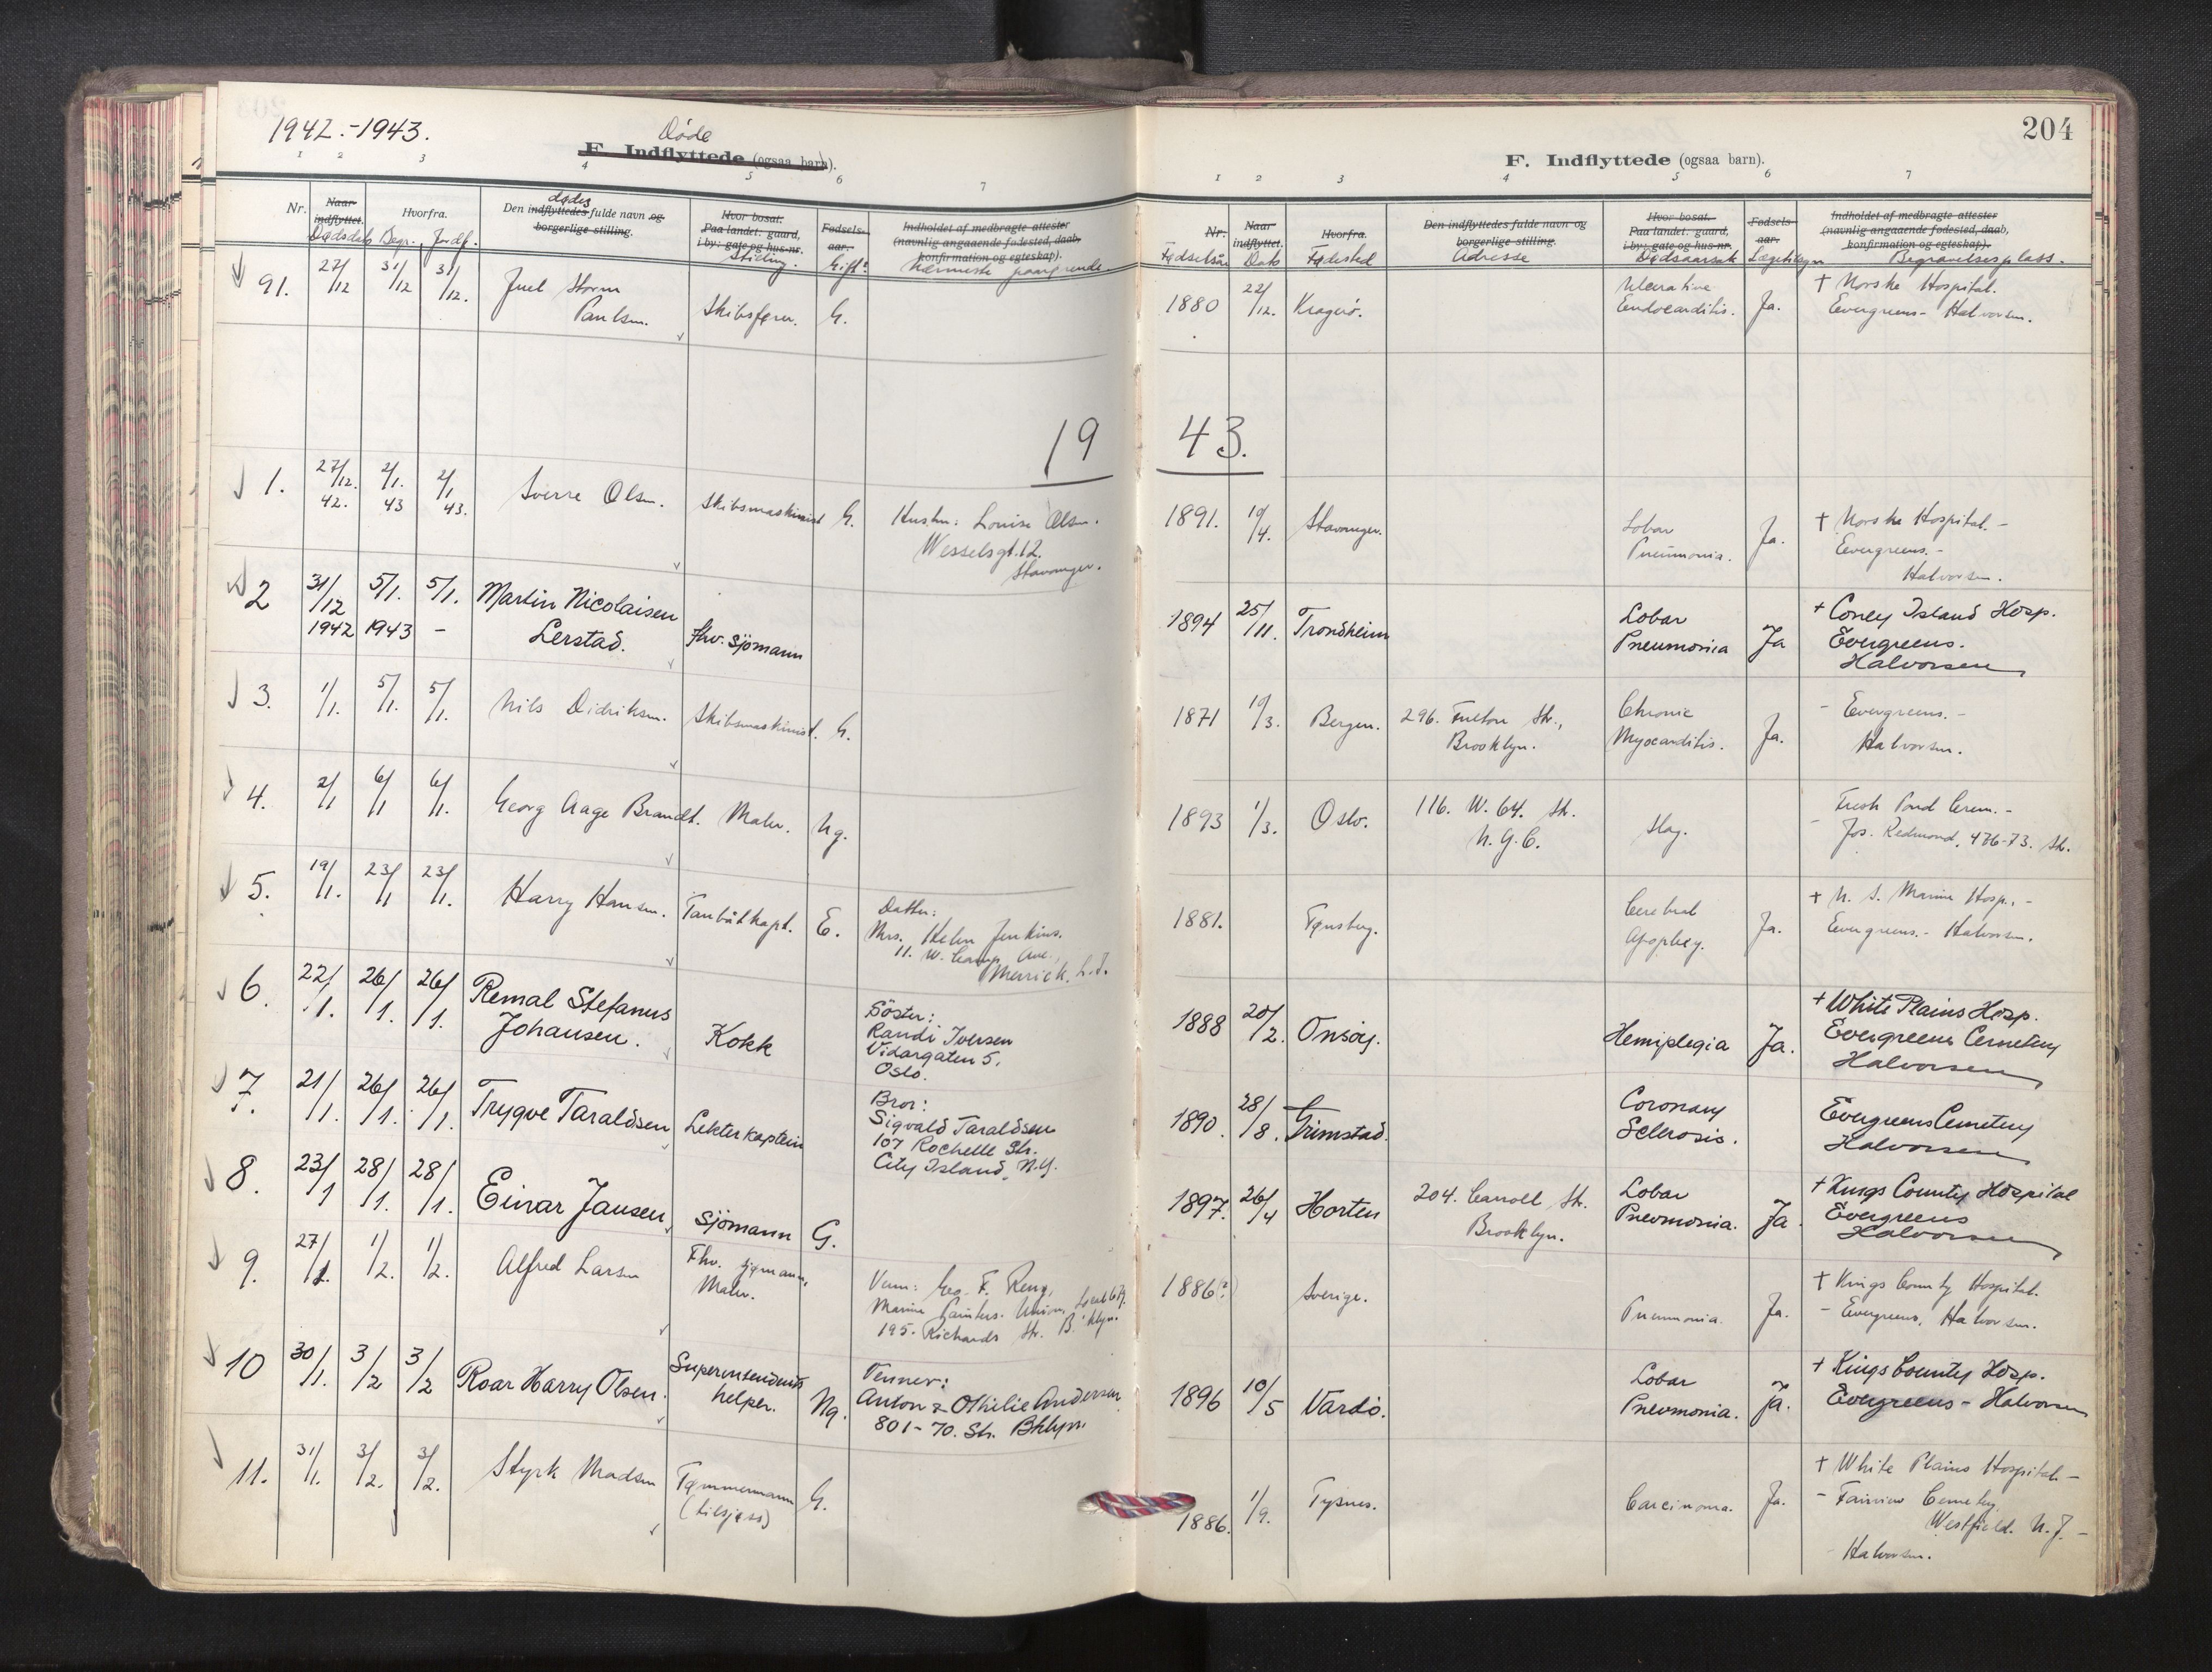 1942.-1943.
Døde
F. Indflyttede (ogsaa barn).
1 2 3 4 5 6 7
Nr.
Naar indflyttet.
Dødsdato
Hvorfra.
Begr. Jordf.
dødes
Den indflyttedes fulde navn og
borgerlige stilling.
Hvor bosat.
Paa landet: gaard,
i by: gate og hus-nr.
Stilling.
Fødsels-
aar.
Gift?
Indholdet af medbragte attester
(navnlig angaaende fødested, daab,
konfirmation og egteskap).
Nærmeste paarørende.
91. 27/12 31/12 31/12. Juel Storm
Paulsen. Skibsfører. G.
19
1. 27/12. 42. 2/1. 43 2/1 43. Sverre Olsen. Skibsmaskinist G. Hustru: Louise Olsen.
Wesselsgt. 12.
Stavanger.
2 31/12 1942 5/1. 1943 5/1. - Martin Nicolaisen
Lerstad. fhv. sjömann
3. 1/1. 5/1. 5/1. Nils Didriksen. Skibsmaskinist. G.
4. 2/1 6/1 6/1. Georg Aage Brandt. Maler. Ug.
5. 19/1. 23/1 23/1. Harry Hansen. Taubåtkapt. E. Datter:
Mrs. Helen Jenkins.
11. W. Camp Ave.,
Merrick. L.I.
6. 22/1. 26/1. 26/1. Remal Stefanus
Johansen. Kokk Söster:
Randi Iversen
Vidargaten 5.
Oslo.
7. 21/1. 26/1. 26/1. Trygve Taraldsen Lekterkaptein Bror:
Sigvald Taraldsen
107 Rochelle Str.
City Island. N.Y.
8. 23/1 28/1. 28/1. Einar Jansen, Sjömann G.
9. 27/1. 1/2. 1/2. Alfred Larsen Fhv. sjømann,
Maler. Venn: Geo. F. Reng,
Marine Painters. Union, Local
195. Richards Str. B'klyn.
10 30/1. 3/2 3/2 Roar Harry Olsen. Superintendents
helper. Ug. Venner:
Anton & Othilie Andersen
801-70. Str. Bklyn.
11. 31/1. 3/2. 3/2. Styrk Madsen Tømmermann
(tilsjøss) G.
204
F. Indflyttede (ogsaa barn).
1 2 3 4 5 6 7
Nr.
Fødselsår
Naar
indflyttet.
Dato
Hvorfra.
Fødested
Den indflyttedes fulde navn og
borgerlige stilling.
Adresse
Hvor bosat.
Paa landet: gaard,
i by: gate og hus-nr.
Dødsaarsak
Fødsels-
aar.
Lægetilsyn
Indholdet af medbragte attester
(navnlig angaaende fødested, daab,
konfirmation og egteskap).
Begravelsesplass.
1880 22/12. Kragerø. Ulcerative
Endocarditis. Ja. † Norske Hospital.
Evergreens- Halvorsen.
43.
1891. 10/4. Stavanger. Lobar
Pneumonia. Ja. † Norske Hospital. -
Evergreens. -
Halvorsen.
1894 25/11. Trondheim Lobar
Pneumonia Ja + Coney Island Hosp.
Evergreens.
Halvorsen
1871 19/3. Bergen. 296. Fulton Str.,
Brooklyn. Chronic
Myocarditis. Ja. - Evergreens. -
Halvorsen.
1893 1/3. Oslo. 116. W. 64. Str.
N.Y.C. Slag. - Fresh Pond Crem. -
Jos. Redmond, 476-73. Str.
1881. Tønsberg. Cerebral
Apoplexy. Ja. + U. S. Marine Hosp., -
Evergreens. - Halvorsen.
1888 20/2. Onsöy. Hemiplegia Ja. + White Plains Hosp.
Evergreens Cemetery
Halvorsen
1890. 28/8. Grimstad. Coronary
Sclerosis. Evergreens Cemetery
Halvorsen
1897. 26/4 Horten 204. Carroll Str.
Brooklyn. Lobar
Pneumonia. Ja. + Kings County Hospital
Evergreens
Halvorsen
1886(?) Sverige. Pneumonia. Ja. † Kings County Hospital.
- Evergreens, Halvorsen.
1896 10/5 Vardö. Lobar
Pneumonia. Ja. + Kings County Hosp.
Evergreens - Halvorsen
1886. 1/9. Tysnes. Carcinoma. Ja. † White Plains Hospital. -
- Fairview Cemetery.
Westfield. N.J. -
- Halvorsen.